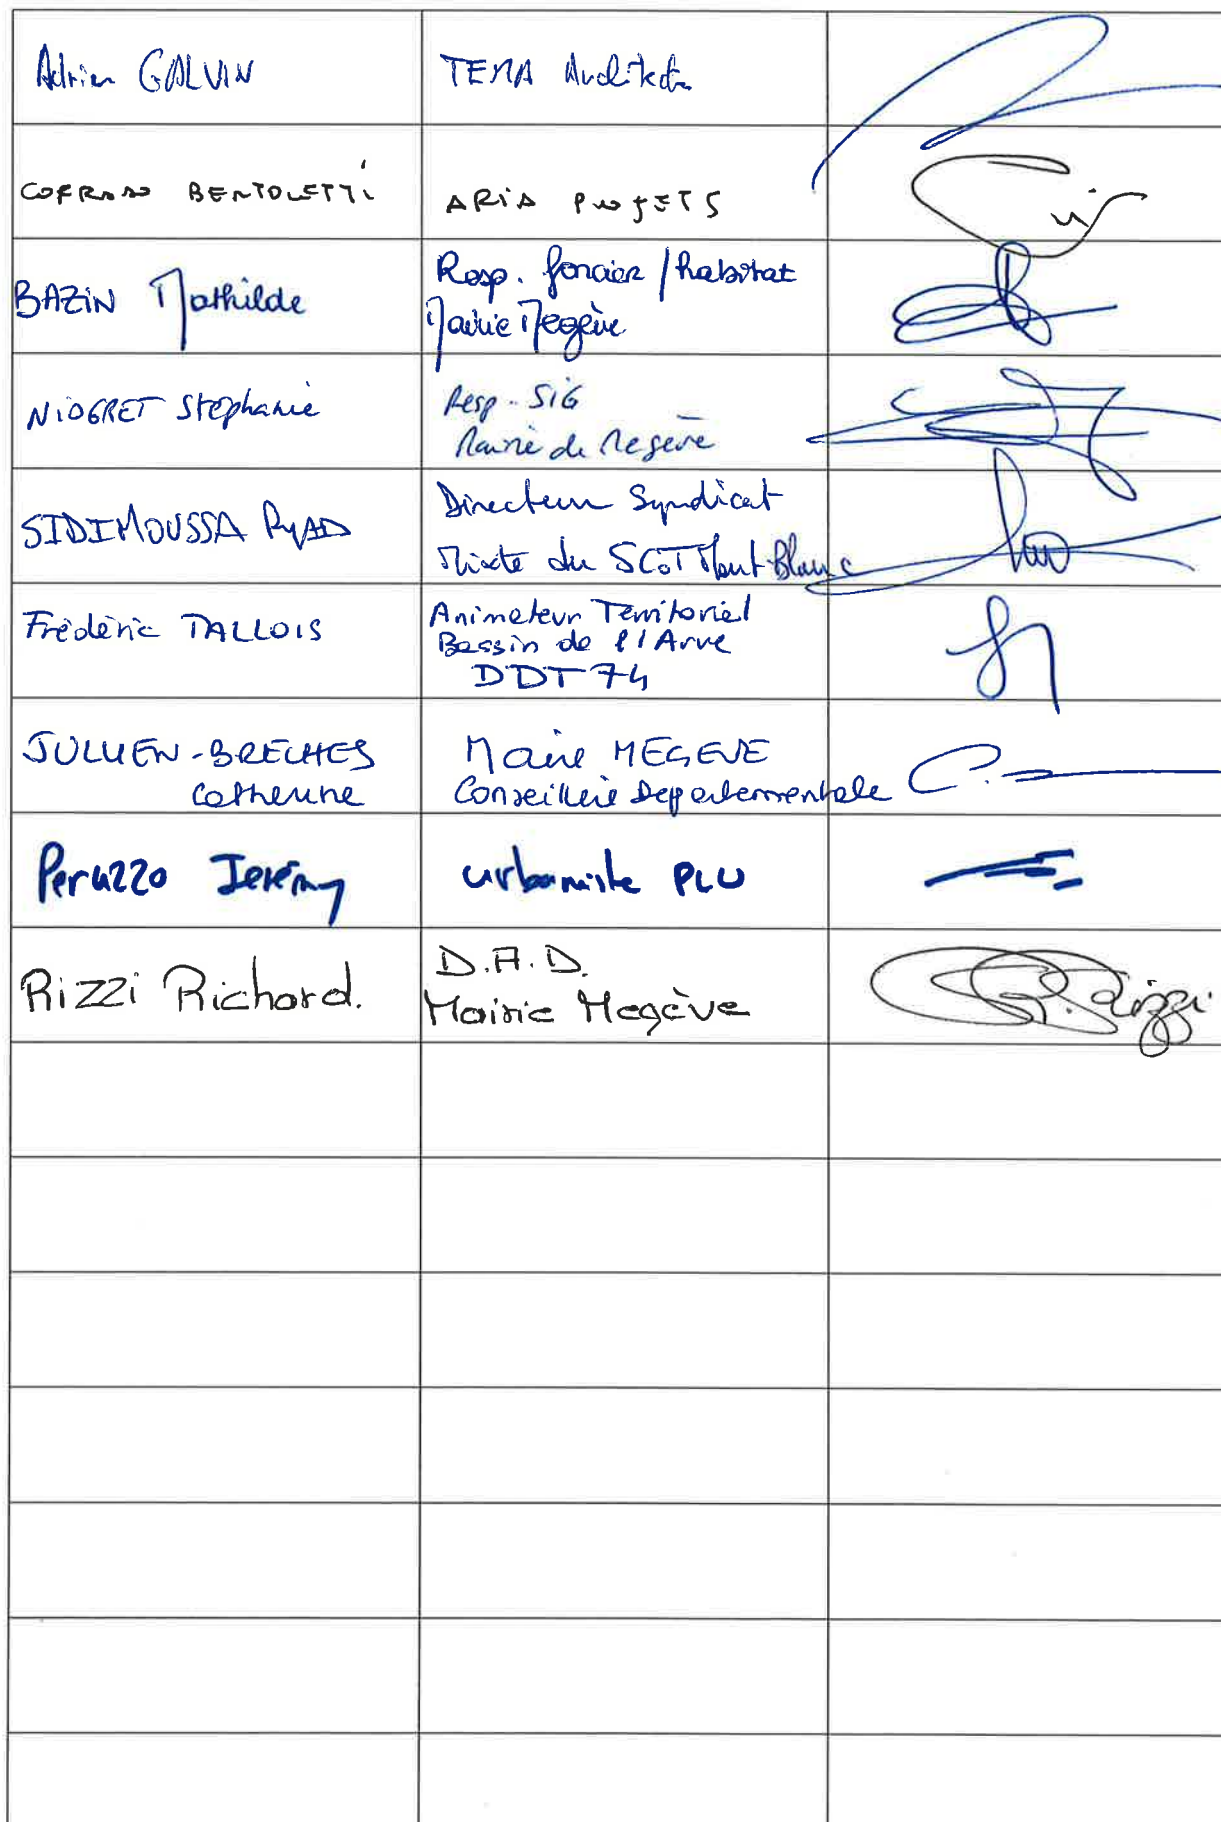 Adrien GALVIN
TEMA Architecte
CORRADO BERTOLETTI
ARIA PROJETS
BAZIN Mathilde
Resp. foncier / habitat
Mairie Megève
NIOGRET Stéphanie
Resp. SIG
Mairie de Megève
SIDIMOUSSA RyAD
Directeur Syndicat
Mixte du SCOT Mont-Blanc
Frédéric TALLOIS
Animateur Territorial
Bassin de l'Arve
DDT 74
JULLIEN-BRECHES
Catherine
Maire MEGEVE
Conseillère Départementale
Peruzzo Jérémy
urbaniste PLU
Rizzi Richard.
D.A.D.
Mairie Megève
R. Rizzi